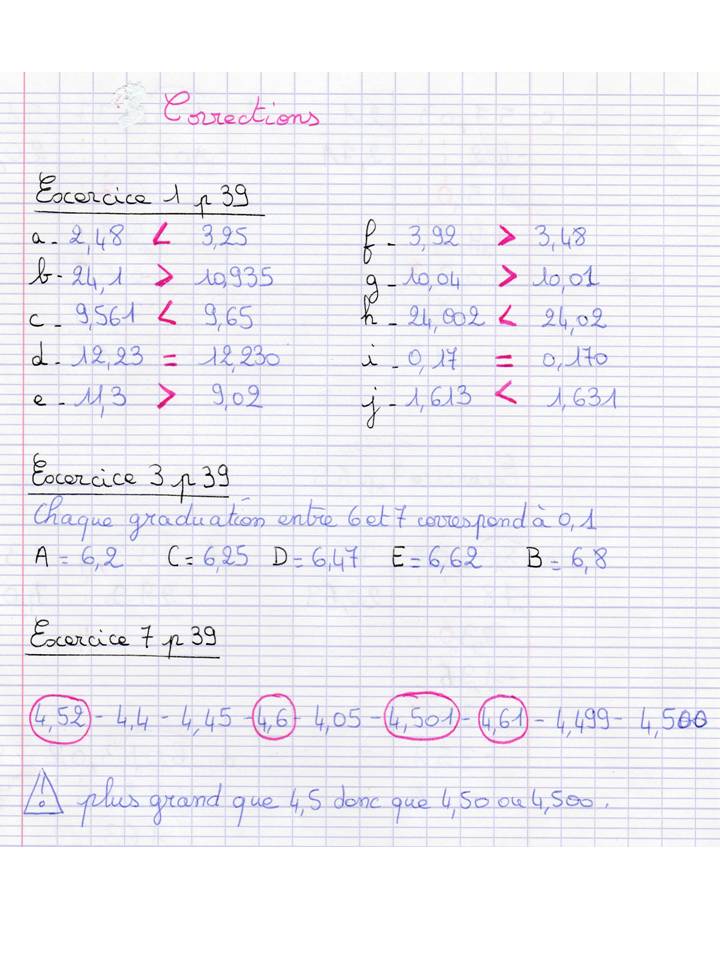 Corrections
Exercice 1 p 39
a - 2,48 < 3,25
b - 24,1 > 10,935
c - 9,561 < 9,65
d - 12,23 = 12,230
e - 11,3 > 9,02
f - 3,92 > 3,48
g - 10,04 > 10,01
h - 24,002 < 24,02
i - 0,17 = 0,170
j - 1,613 < 1,631
Exercice 3 p 39
Chaque graduation entre 6 et 7 correspond à 0,1
A = 6,2 C = 6,25 D = 6,47 E = 6,62 B = 6,8
Exercice 7 p 39
4,52 - 4,4 - 4,45 - 4,6 - 4,05 - 4,501 - 4,61 - 4,499 - 4,500
! plus grand que 4,5 donc que 4,50 ou 4,500.